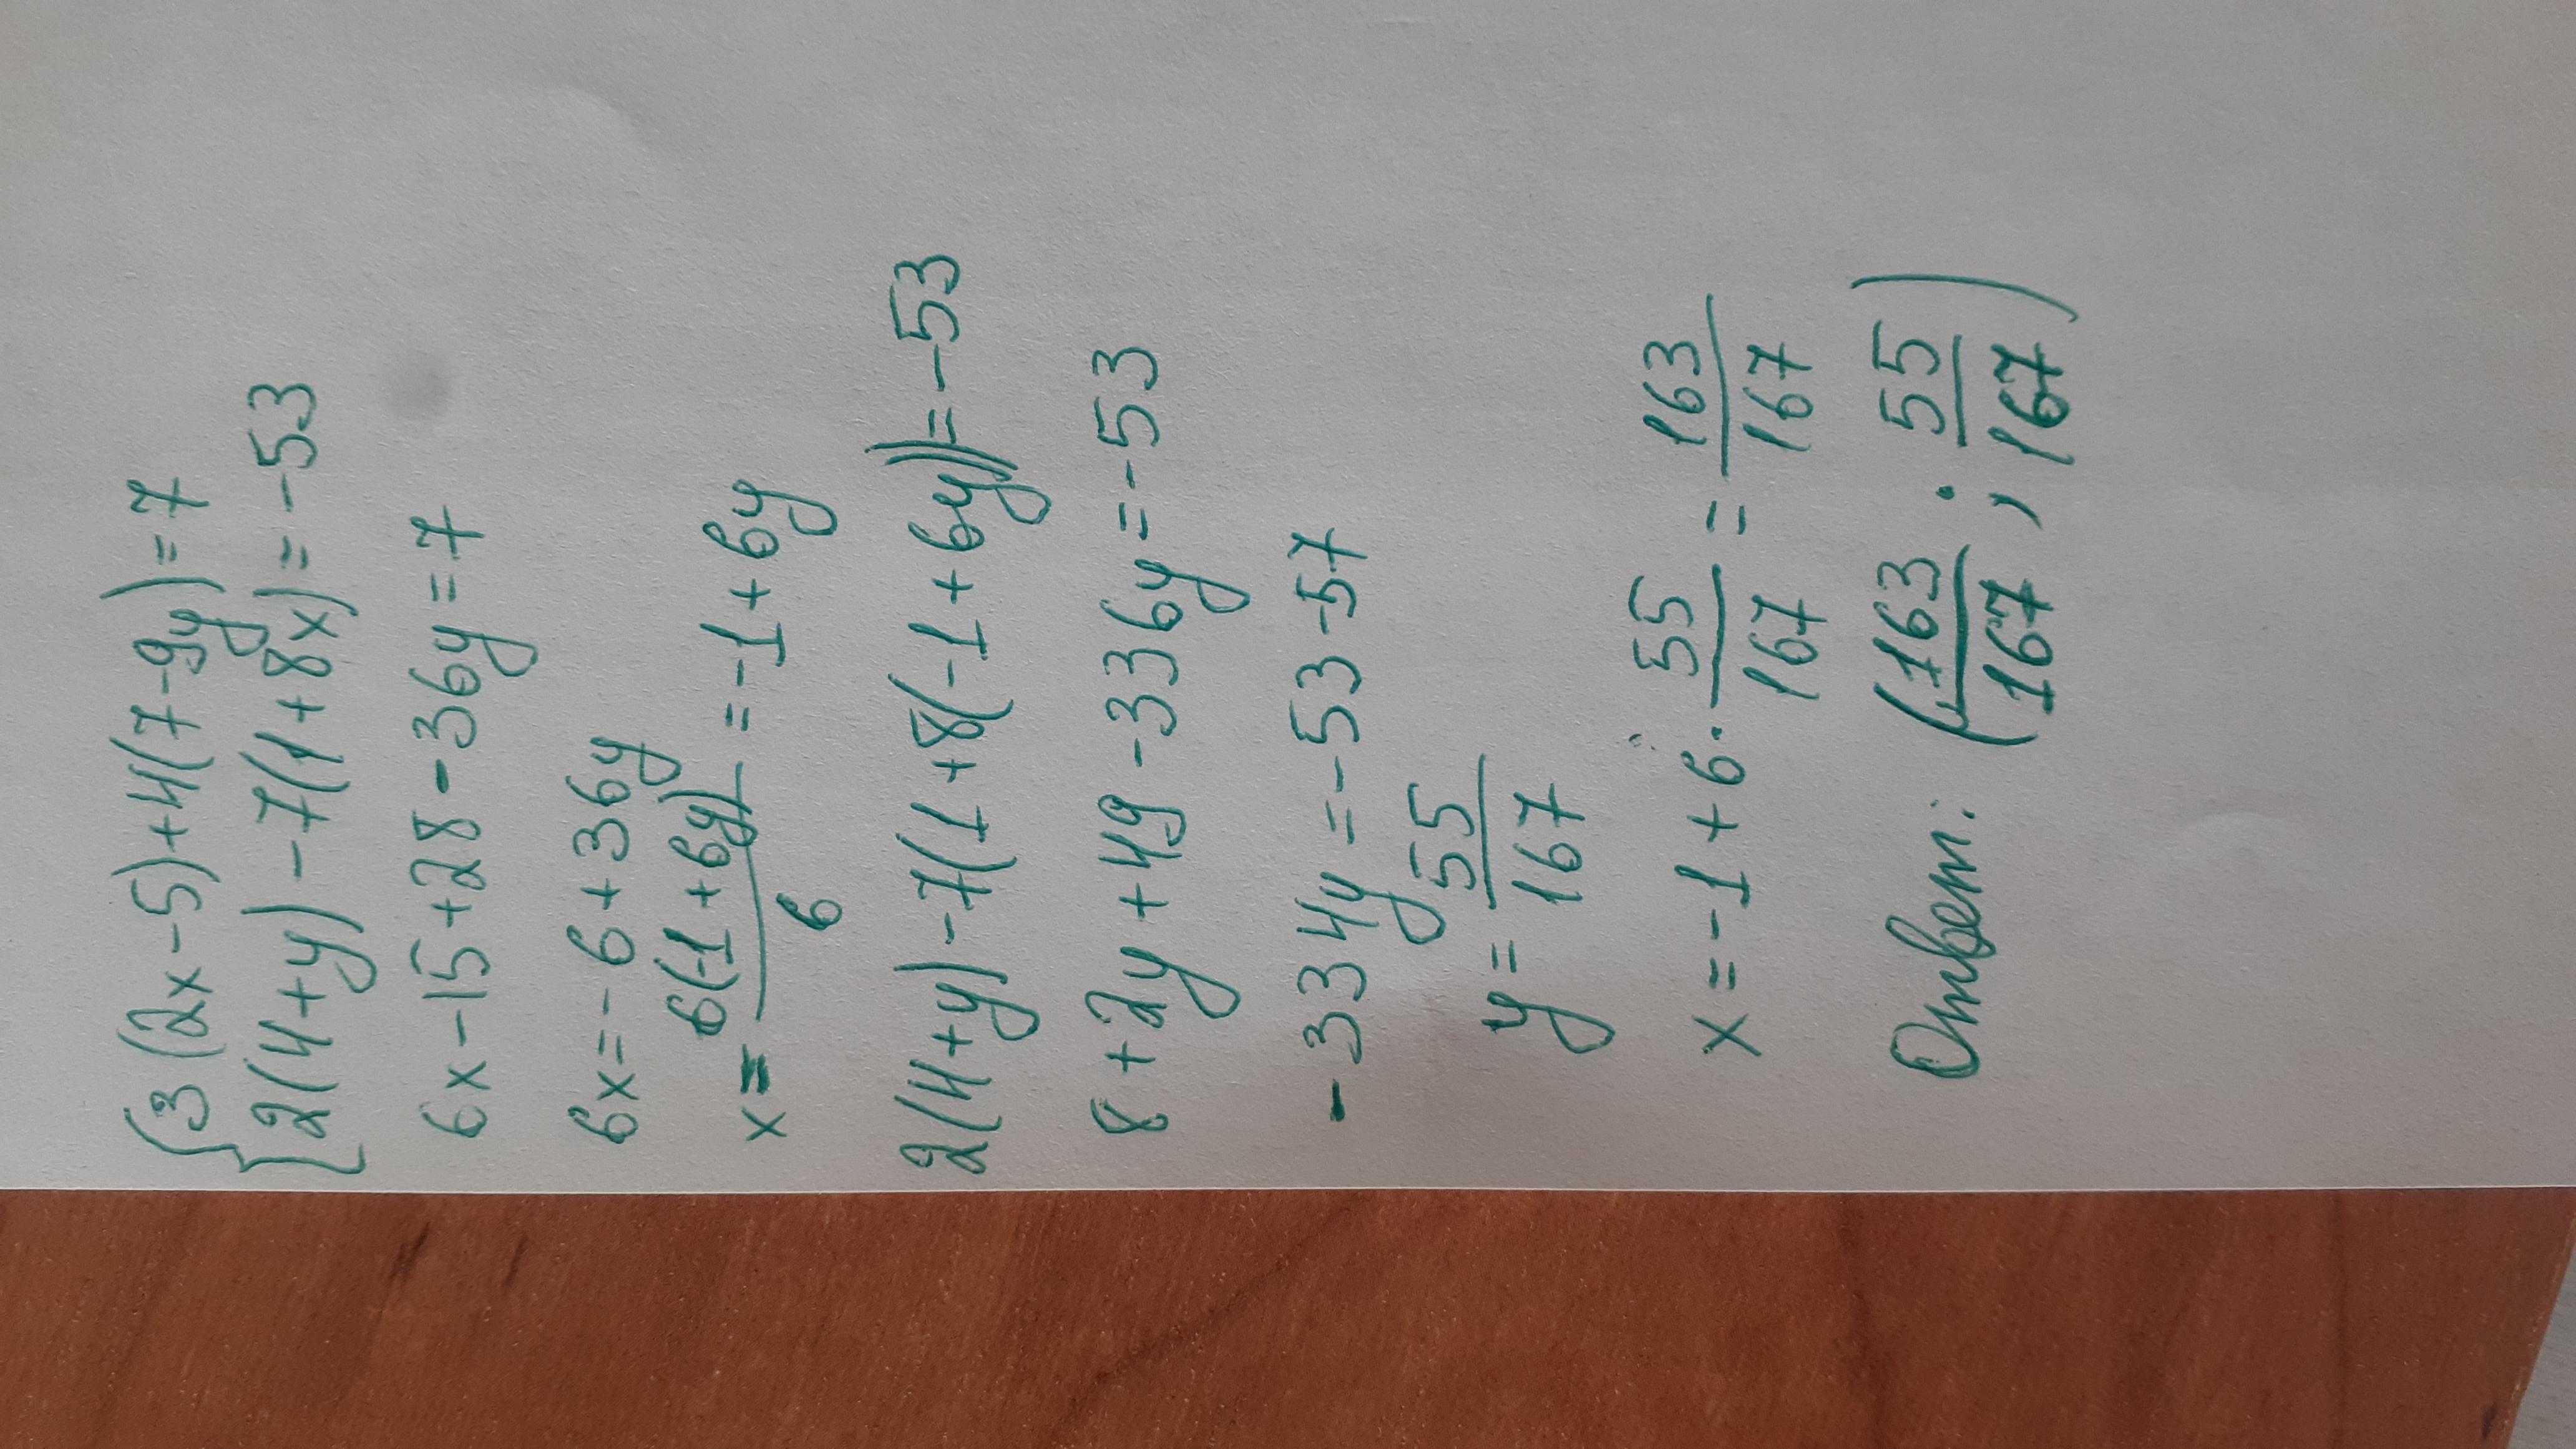 {3(2x-5)+4(7-9y)=7
2(4+y)-7(1+8x)=-53
6x-15+28-36y=7
6x=-6+36y
x=6(-1+6y)/6=-1+6y
2(4+y)-7(1+8(-1+6y))=-53
8+2y+49-336y=-53
-334y=-53-57
y=55/167
x=-1+6·55/167=163/167
Ответ: (163/167; 55/167)